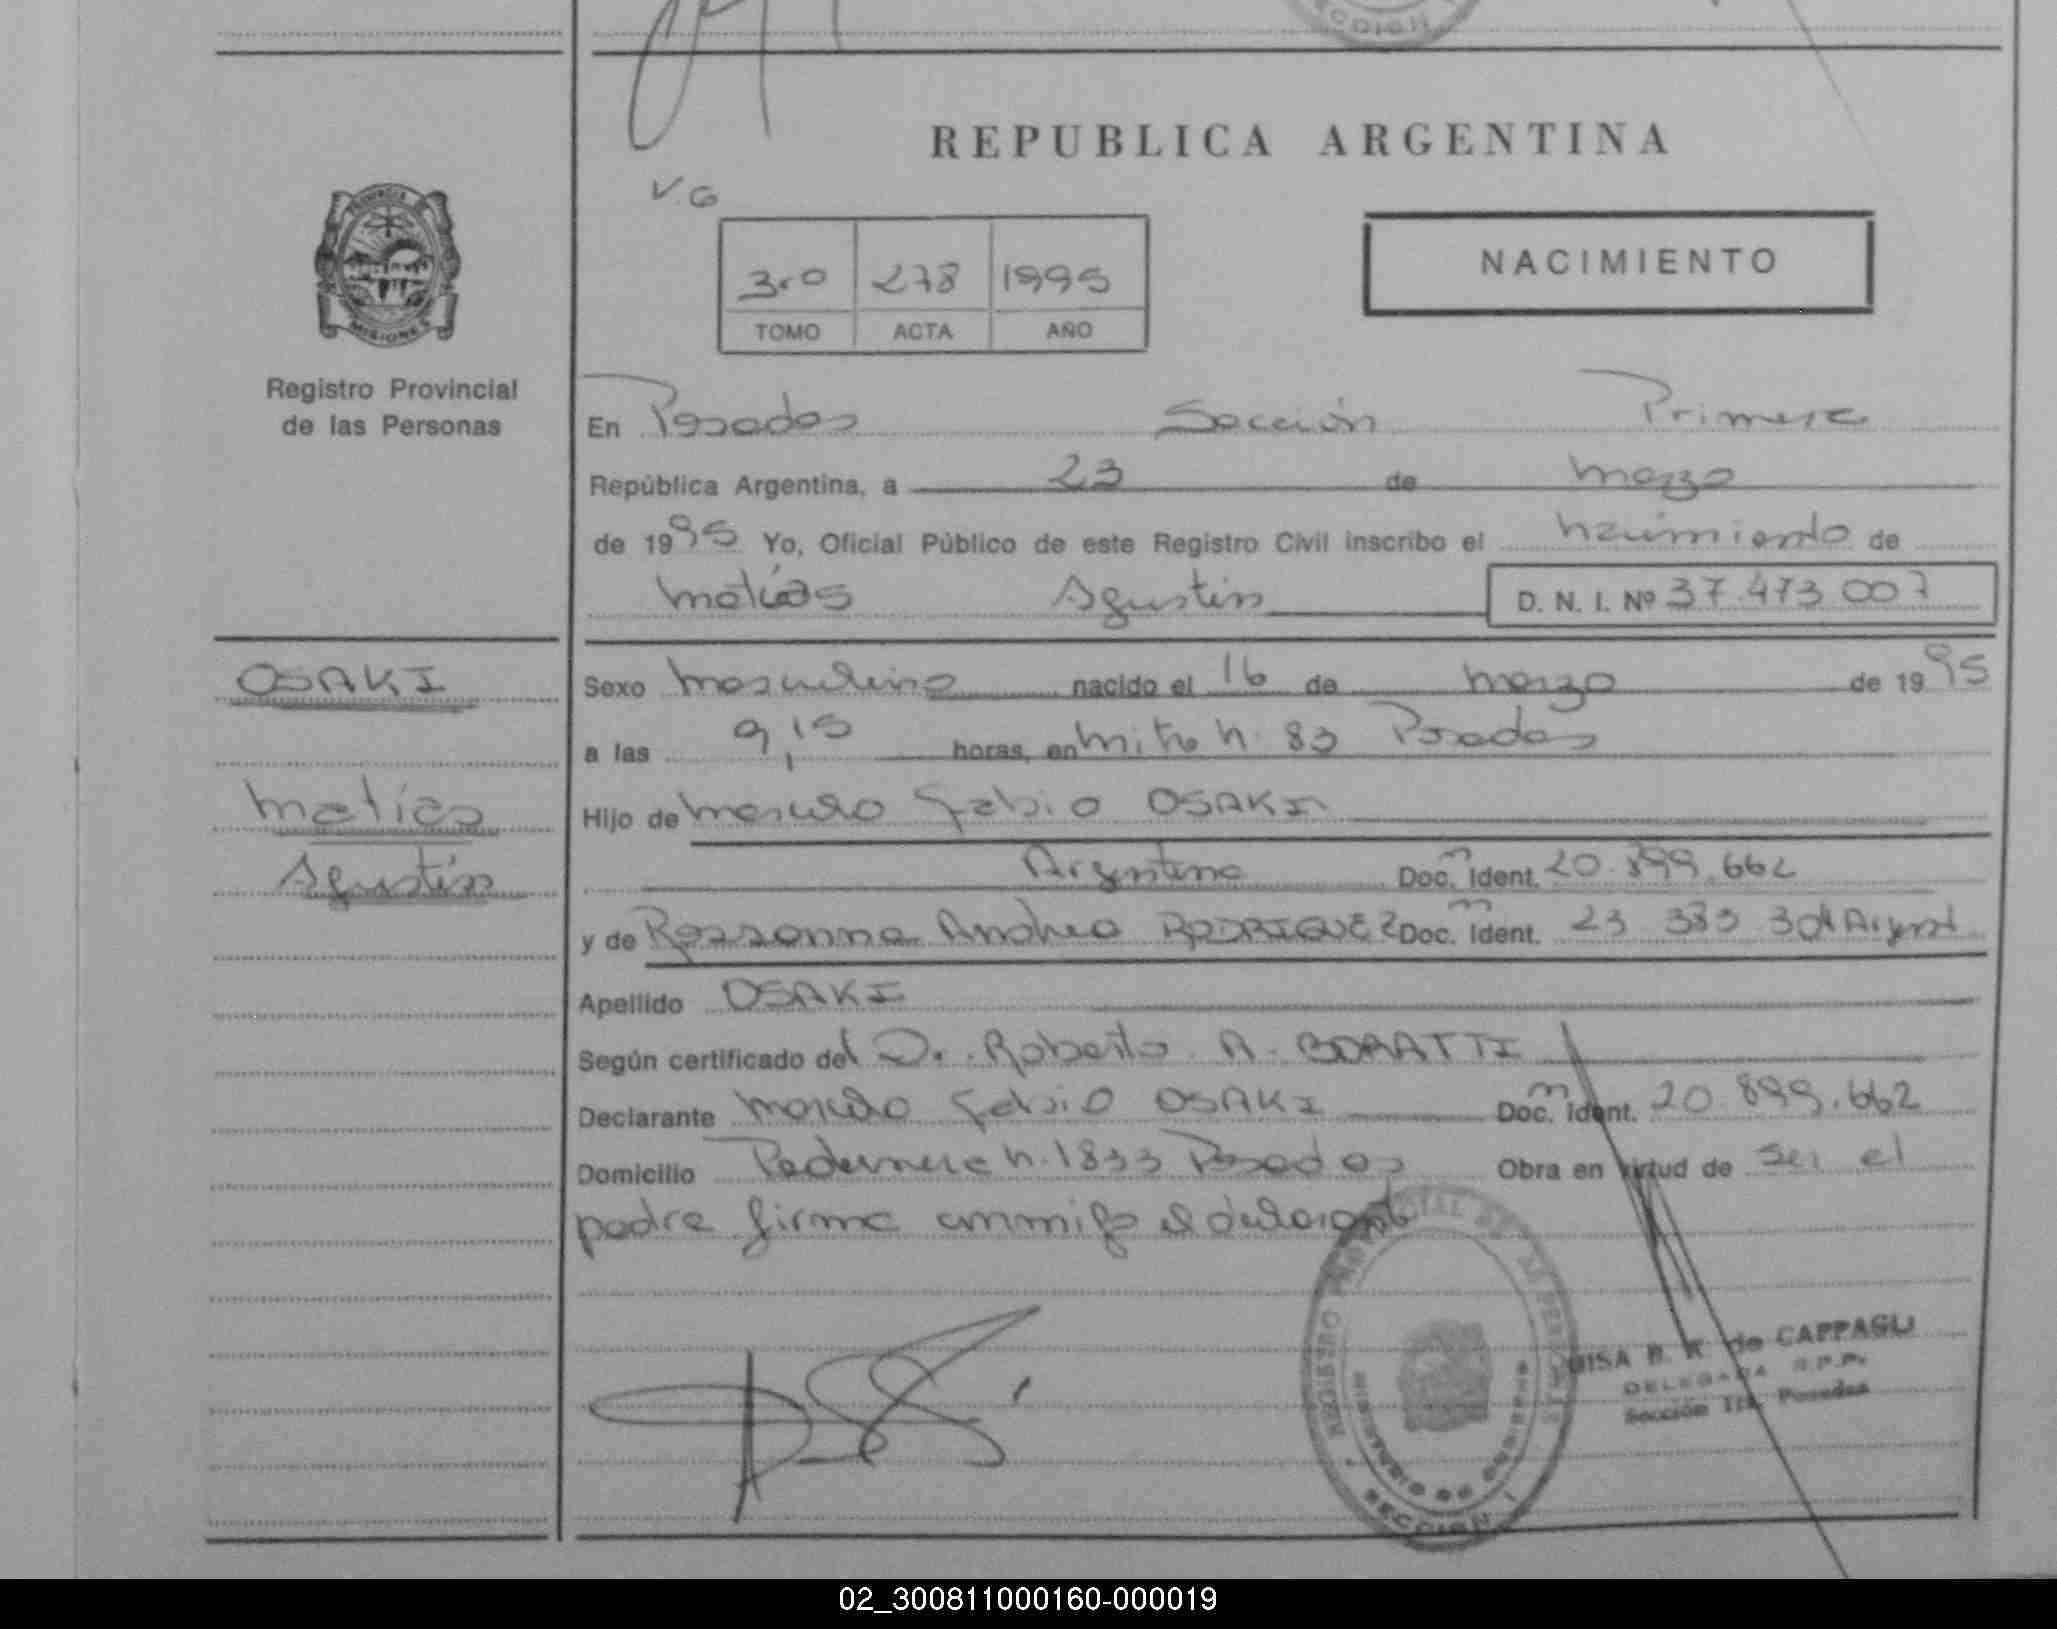 SECCION
REPUBLICA ARGENTINA
V.G
NACIMIENTO
3ro 278 1995
TOMO ACTA AÑO
PROVINCIA DE
MISIONES
Registro Provincial
de las Personas
En Posadas Sección Primera
República Argentina, a 23 de marzo
de 1995 Yo, Oficial Público de este Registro Civil inscribo el nacimiento de
Matías Agustín D. N. I. Nº 37.473.007
OSAKI
Sexo masculino nacido el 16 de marzo de 1995
a las 9,15 horas, en Mitre n. 83 Posadas
Matías
Hijo de Marcelo Fabio OSAKI
Agustín
Argentino Doc. Ident. 20.899.662
y de Rossanna Andrea RODRIGUEZ Doc. Ident. 23 383 304 Argent
Apellido OSAKI
Según certificado del Dr. Roberto A. BORATTI
Declarante Marcelo Fabio OSAKI Doc. Ident. 20.899.662
Domicilio Pedernera n. 1833 Posadas Obra en virtud de ser el
padre firma conmigo el declarante
REGISTRO PROVINCIAL DE LAS PERSONAS
MISIONES
POSADAS
SECCION 1
B. R. de CAPPAGLI
DELEGADA R.P.P.
Sección 1ra. Posadas
02_300811000160-000019